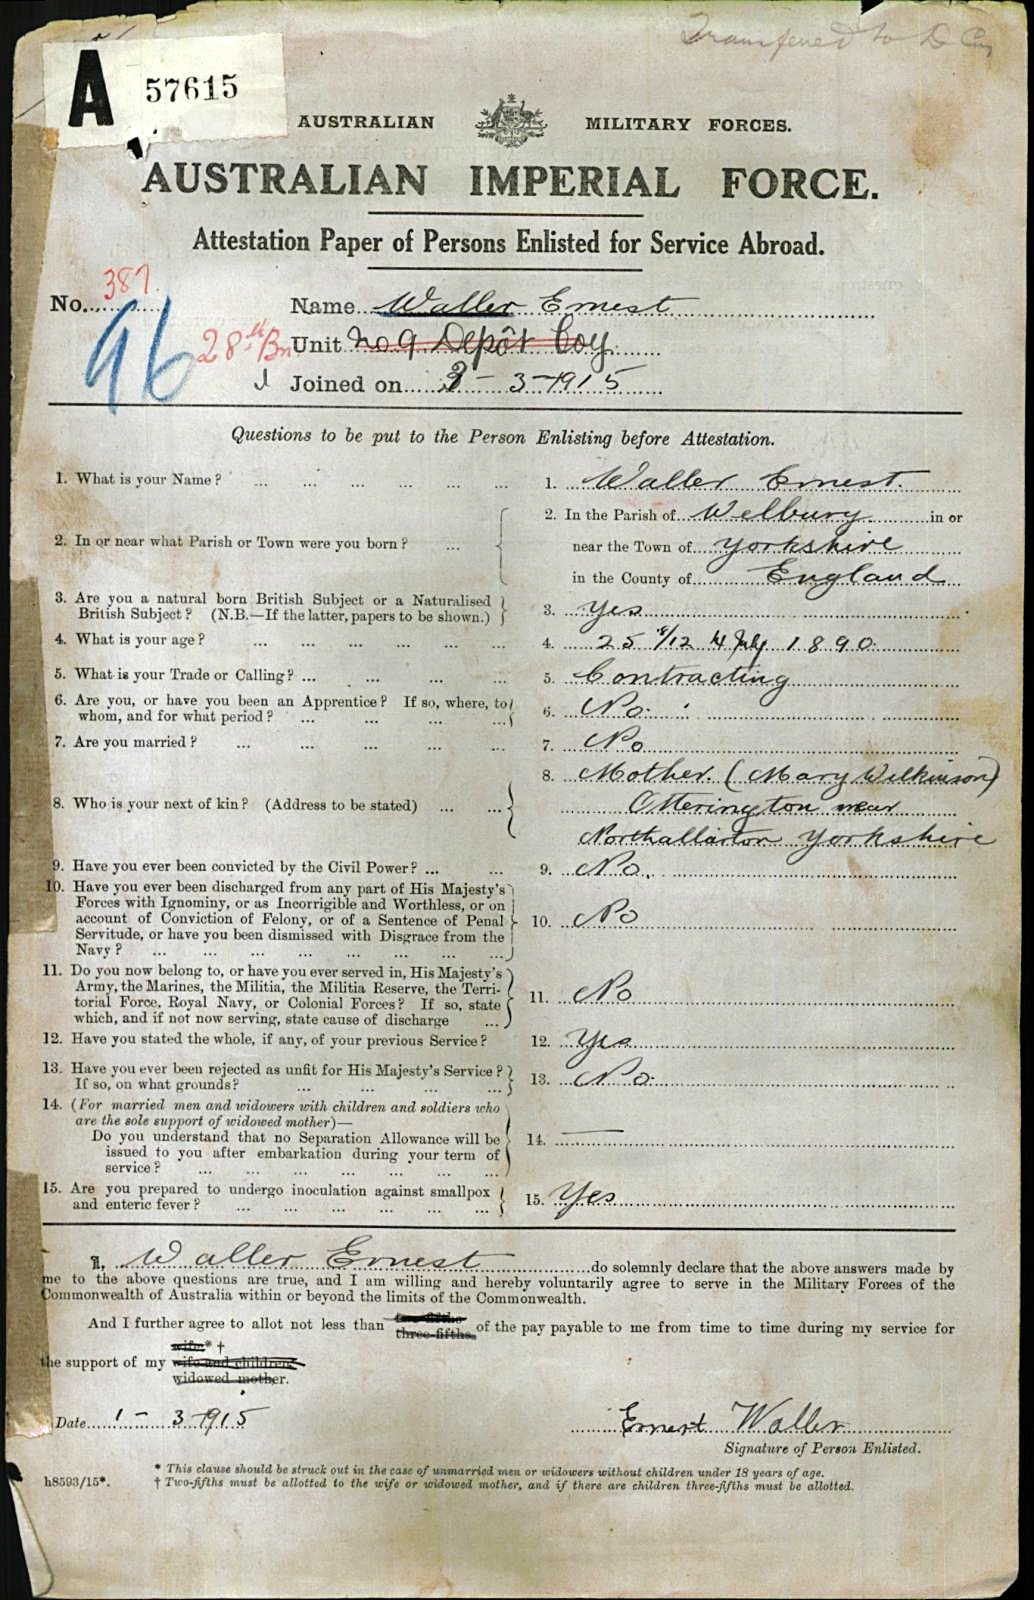 Transferred to D Coy
A 57615
AUSTRALIAN MILITARY FORCES.
AUSTRALIAN IMPERIAL FORCE.
Attestation Paper of Persons Enlisted for Service Abroad.
No. 387 Name Waller Ernest
96 28th Bn Unit No 9 Depôt Coy
Joined on 3-3-1915
Questions to be put to the Person Enlisting before Attestation.
1. What is your Name? ... ... ... ... ... ... 1. Waller Ernest.
2. In or near what Parish or Town were you born? ... 2. In the Parish of Welbury in or
near the Town of Yorkshire
in the County of England
3. Are you a natural born British Subject or a Naturalised
British Subject? (N.B.—If the latter, papers to be shown.) 3. Yes
4. What is your age? ... ... ... ... ... 4. 25 8/12 4 July 1890
5. What is your Trade or Calling? ... ... ... ... 5. Contracting
6. Are you, or have you been an Apprentice? If so, where, to
whom, and for what period? ... ... ... ... 6. No.
7. Are you married? ... ... ... ... ... 7. No
8. Who is your next of kin? (Address to be stated) ... ... 8. Mother. (Mary Wilkinson)
Otterington near
Northallerton Yorkshire
9. Have you ever been convicted by the Civil Power? ... ... 9. No.
10. Have you ever been discharged from any part of His Majesty's
Forces with Ignominy, or as Incorrigible and Worthless, or on
account of Conviction of Felony, or of a Sentence of Penal
Servitude, or have you been dismissed with Disgrace from the
Navy? ... ... ... ... ... ... ... ... 10. No
11. Do you now belong to, or have you ever served in, His Majesty's
Army, the Marines, the Militia, the Militia Reserve, the Terri-
torial Force, Royal Navy, or Colonial Forces? If so, state
which, and if not now serving, state cause of discharge ... 11. No
12. Have you stated the whole, if any, of your previous Service? 12. Yes
13. Have you ever been rejected as unfit for His Majesty's Service?
If so, on what grounds? ... ... ... ... 13. No
14. (For married men and widowers with children and soldiers who
are the sole support of widowed mother)—
Do you understand that no Separation Allowance will be
issued to you after embarkation during your term of
service? ... ... ... ... ... ... ... 14. —
15. Are you prepared to undergo inoculation against smallpox
and enteric fever? ... ... ... ... ... ... 15. Yes
I, Waller Ernest do solemnly declare that the above answers made by
me to the above questions are true, and I am willing and hereby voluntarily agree to serve in the Military Forces of the
Commonwealth of Australia within or beyond the limits of the Commonwealth.
And I further agree to allot not less than two-fifths three-fifths of the pay payable to me from time to time during my service for
wife* †
the support of my wife and children
widowed mother.
Date 1-3-1915 Ernest Waller
Signature of Person Enlisted.
* This clause should be struck out in the case of unmarried men or widowers without children under 18 years of age.
h8593/15*. † Two-fifths must be allotted to the wife or widowed mother, and if there are children three-fifths must be allotted.